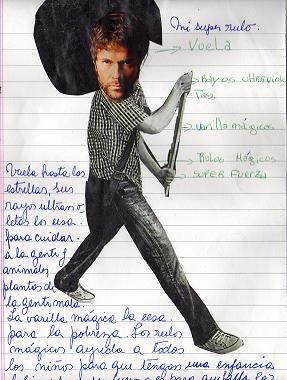 mi super rulo.
VUELA
RAYOS ULTRAVIOLE
TAS
varilla mágicos
Rulos Mágicos
SUPER FUERZA
Vuela hasta las
estrellas, sus
rayos ultravio
letas los usa.
para cuidar.
a la gente y
animales
plantas de
la gente mala.
La varilla mágica la usa.
para la pobreza. Los rulos
mágicos ayuda a todos
los niños para que tengas una enfancia